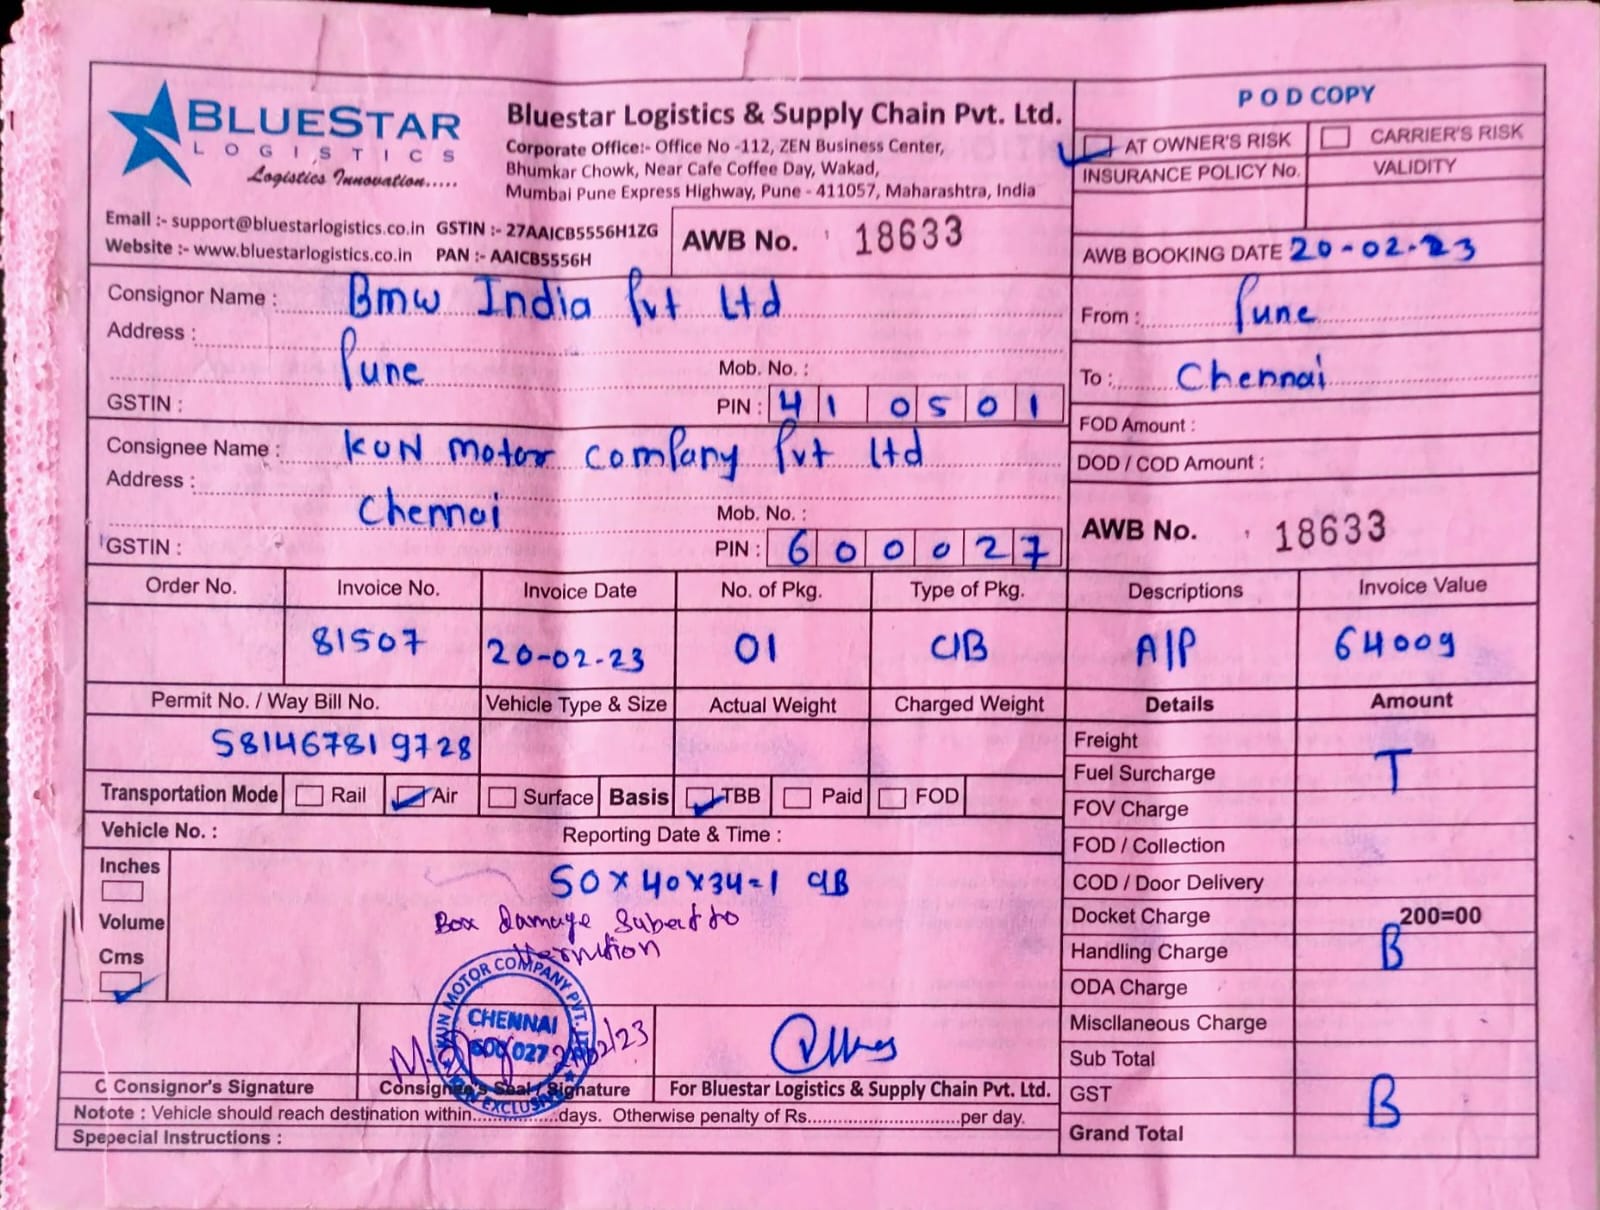 BLUESTAR
LOGISTICS
Logistics Innovation.....
Bluestar Logistics & Supply Chain Pvt. Ltd.
Corporate Office:- Office No -112, ZEN Business Center,
Bhumkar Chowk, Near Cafe Coffee Day, Wakad,
Mumbai Pune Express Highway, Pune - 411057, Maharashtra, India
Email :- support@bluestarlogistics.co.in GSTIN :- 27AAICB5556H1ZG
Website :- www.bluestarlogistics.co.in PAN :- AAICB5556H
AWB No. 18633
POD COPY
AT OWNER'S RISK CARRIER'S RISK
INSURANCE POLICY No. VALIDITY
AWB BOOKING DATE 20-02-23
Consignor Name : Bmw India Pvt Ltd
Address :
Pune
Mob. No. :
GSTIN :
PIN : 410501
From : Pune
To : Chennai
FOD Amount :
DOD / COD Amount :
Consignee Name : KUN Motor Company Pvt Ltd
Address :
Chennai
Mob. No. :
GSTIN :
PIN : 600027
AWB No. 18633
Order No. Invoice No. Invoice Date No. of Pkg. Type of Pkg. Descriptions Invoice Value
81507 20-02-23 01 C/B A/P 64009
Permit No. / Way Bill No. Vehicle Type & Size Actual Weight Charged Weight Details Amount
581467819728
Transportation Mode Rail Air Surface Basis TBB Paid FOD
Vehicle No. : Reporting Date & Time :
Inches
Volume
Cms
50 x 40 x 34 = 1 C/B
Box damage
Freight
Fuel Surcharge
T
FOV Charge
FOD / Collection
COD / Door Delivery
Docket Charge 200=00
Handling Charge
B
ODA Charge
Miscllaneous Charge
Sub Total
GST
B
Grand Total
KUN MOTOR COMPANY PVT. LTD
CHENNAI
600 027
C Consignor's Signature Consignee's Seal / Signature For Bluestar Logistics & Supply Chain Pvt. Ltd.
Notote : Vehicle should reach destination within..............days. Otherwise penalty of Rs............................per day.
Spepecial Instructions :